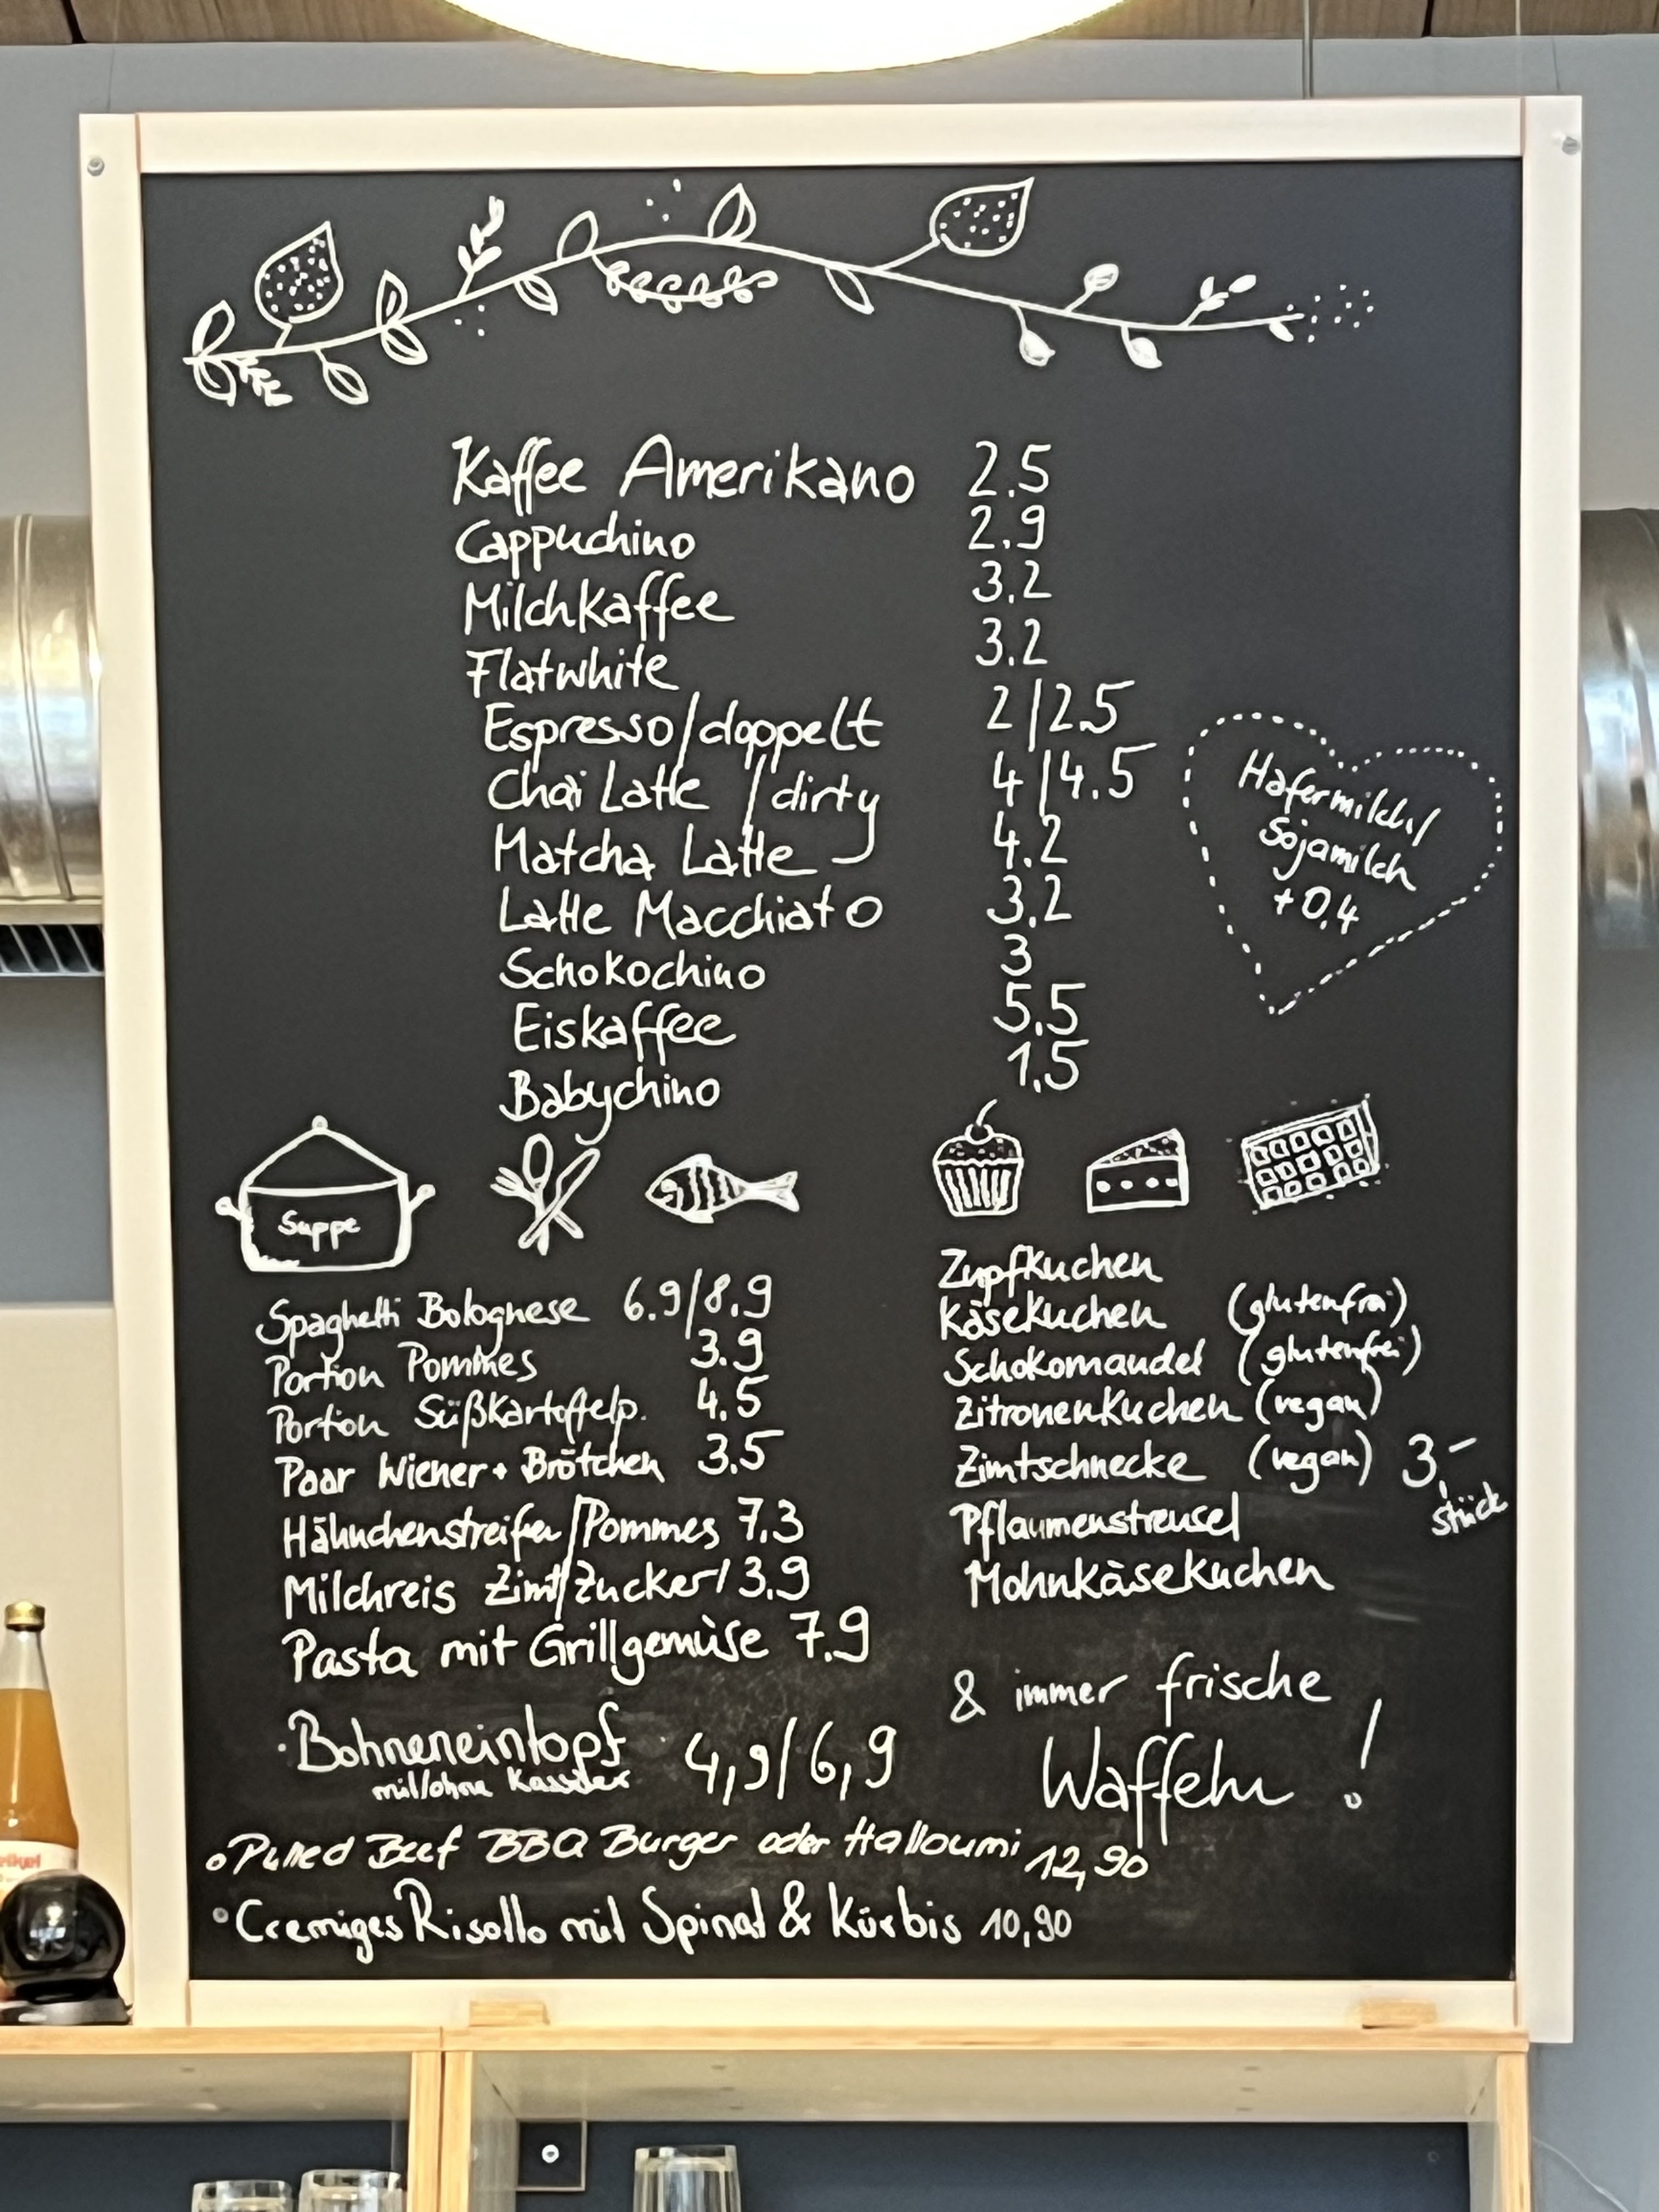 Kaffee Amerikano 2.5
Cappuchino 2.9
Milchkaffee 3.2
Flatwhite 3.2
Espresso/doppelt 2/2.5
Chai Latte /dirty 4/4.5
Matcha Latte 4.2
Latte Macchiato 3,2
Schokochino 3
Eiskaffee 5,5
Babychino 1,5
Hafermilch/
Sojamilch
+0,4
Suppe
Spaghetti Bolognese 6.9/8.9
Portion Pommes 3.9
Portion Süßkartoffelp. 4,5
Paar Wiener + Brötchen 3,5
Hähnchenstreifen/Pommes 7,3
Milchreis Zimt/Zucker/ 3,9
Pasta mit Grillgemüse 7.9
·Bohneneintopf 4,9/6,9
mit/ohne Kassler
Zupfkuchen
Käsekuchen (glutenfrei)
Schokomandel (glutenfrei)
Zitronenkuchen (vegan)
Zimtschnecke (vegan) 3,-
Stück
Pflaumenstreusel
Mohnkäsekuchen
& immer frische
Waffeln!
Pulled Beef BBQ Burger oder Halloumi 12,90
Cremiges Risotto mit Spinat & Kürbis 10,90